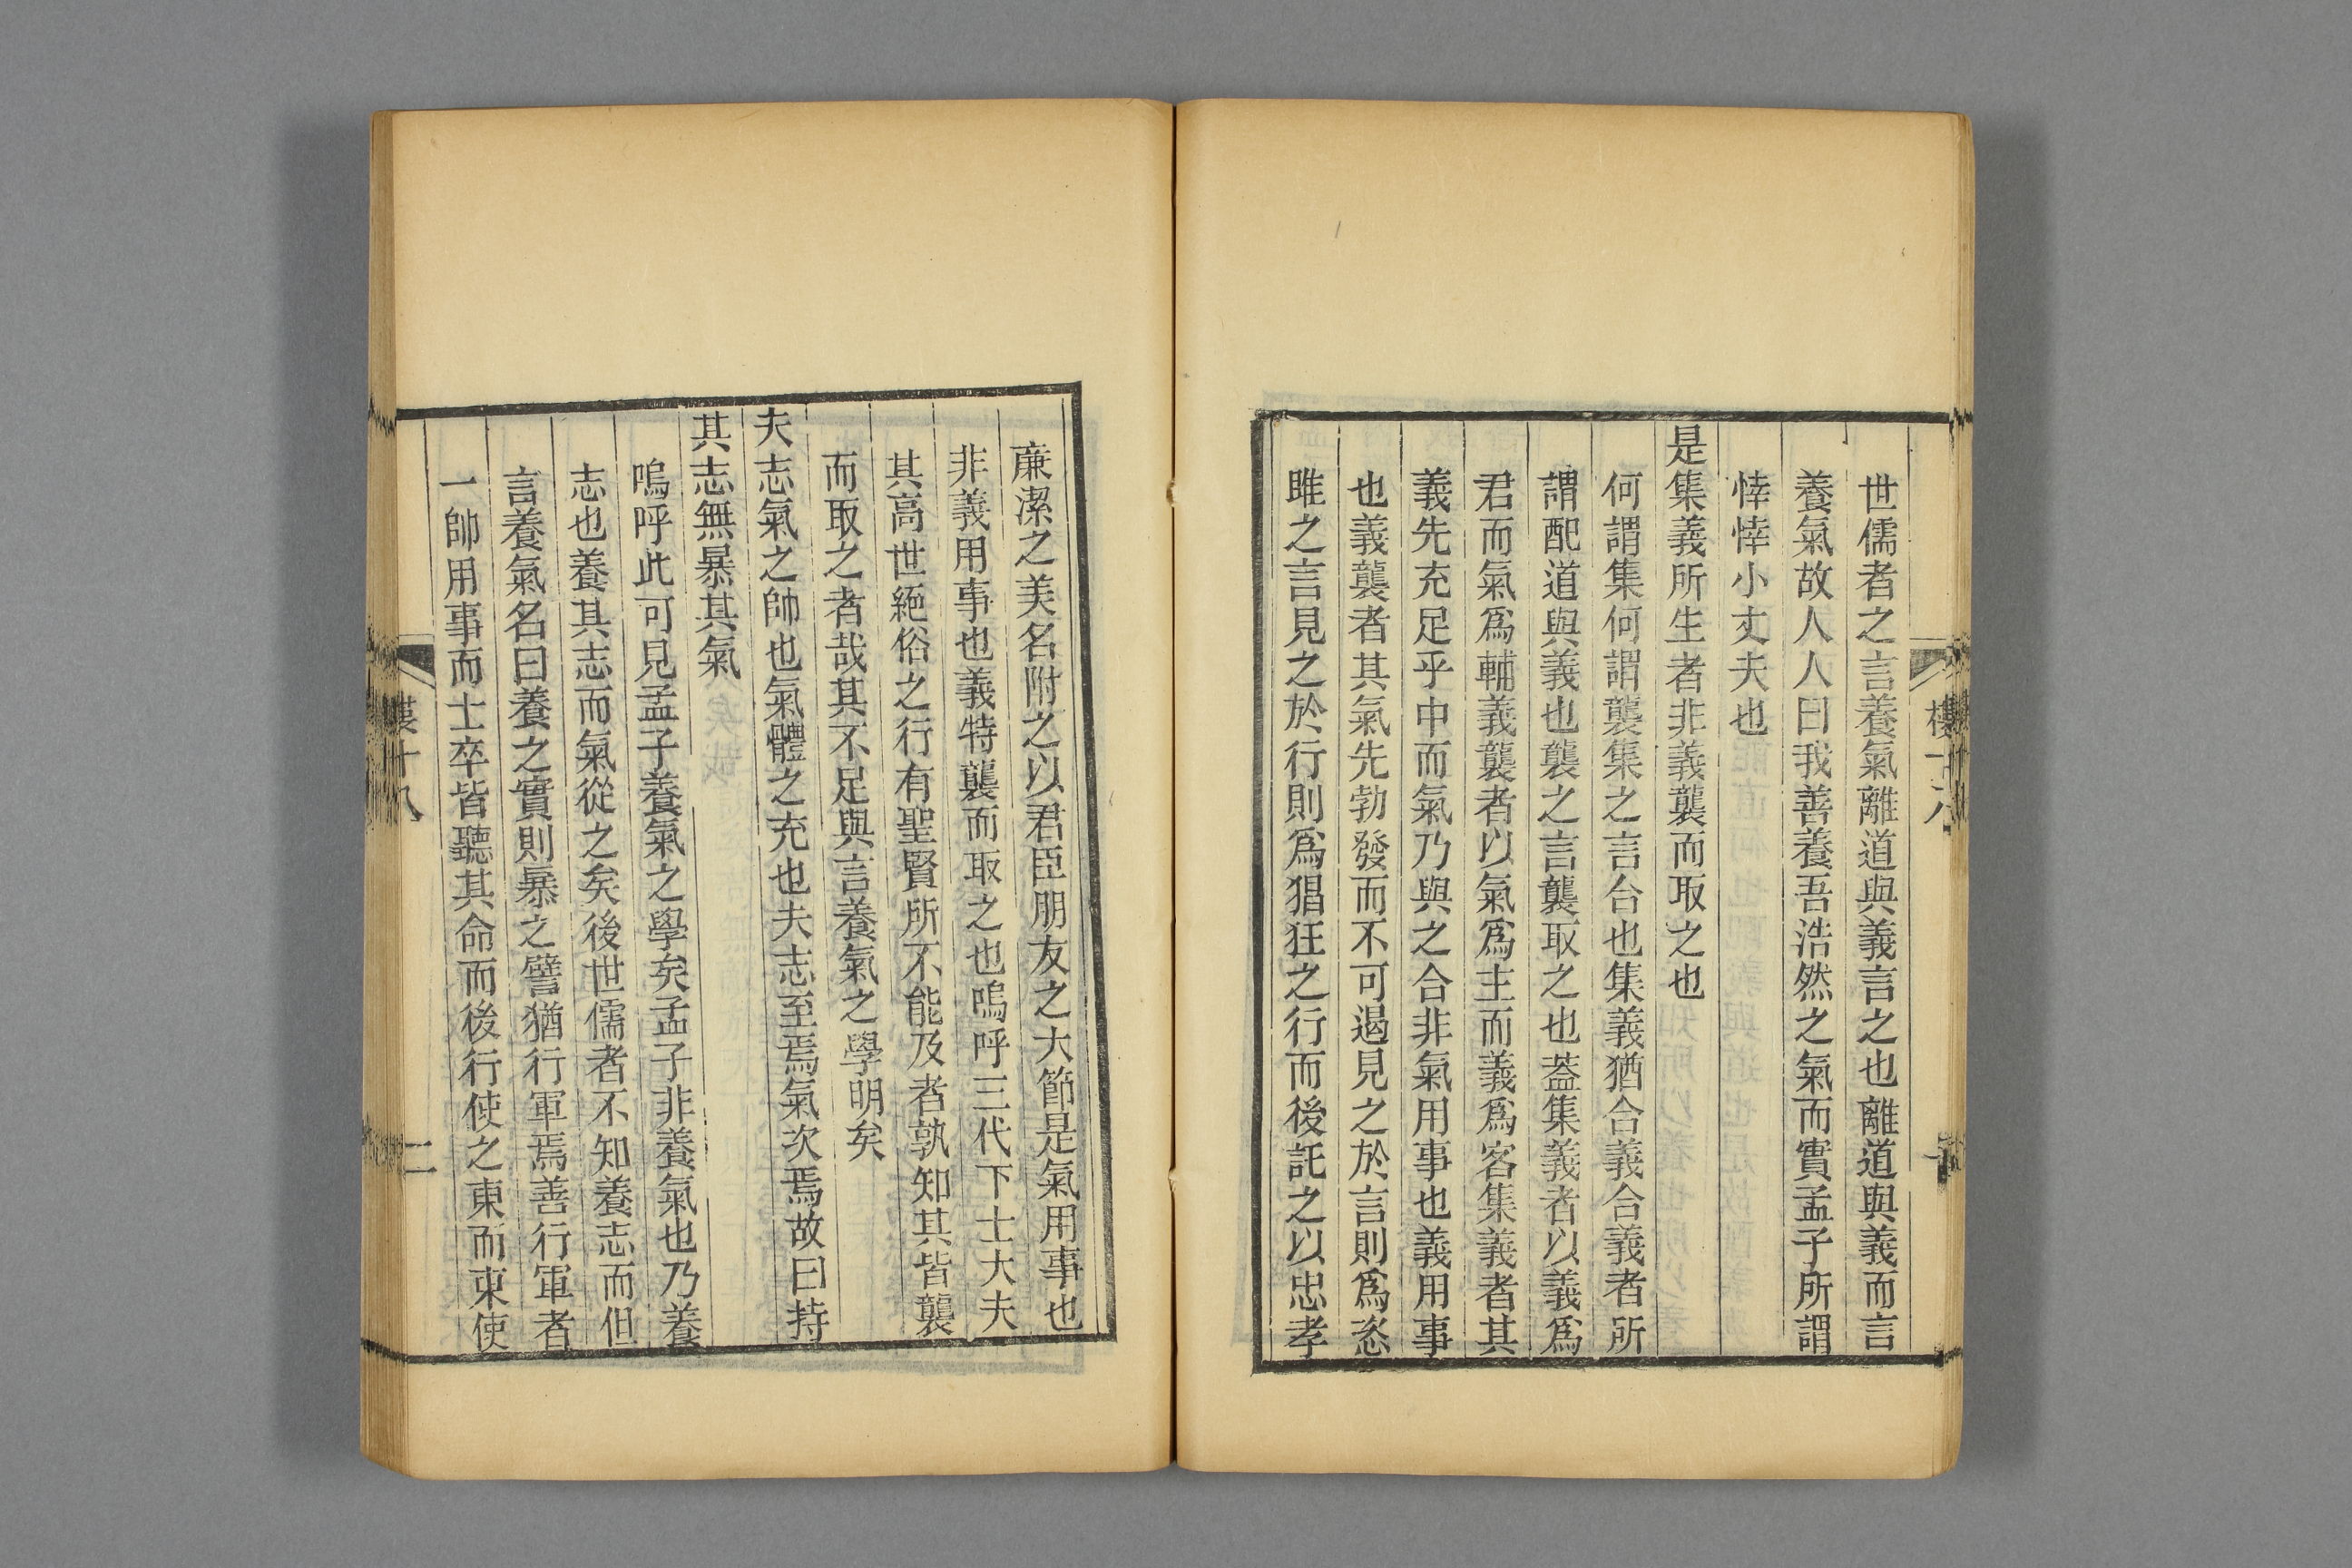 世儒者之言養氣離道與義言之也離道與義而言
養氣故人人曰我善養吾浩然之氣而實孟子所謂
悻悻小丈夫也
是集義所生者非義襲而取之也
何謂集何謂襲集之言合也集義猶合義合義者所
謂配道與義也襲之言襲取之也葢集義者以義爲
君而氣爲輔義襲者以氣爲主而義爲客集義者其
義先充足乎中而氣乃與之合非氣用事也義用事
也義襲者其氣先勃發而不可遏見之於言則爲恣
雎之言見之於行則爲猖狂之行而後託之以忠孝
廉潔之美名附之以君臣朋友之大節是氣用事也
非義用事也義特襲而取之也嗚呼三代下士大夫
其高世絕俗之行有聖賢所不能及者孰知其皆襲
而取之者哉其不足與言養氣之學明矣
夫志氣之帥也氣體之充也夫志至焉氣次焉故曰持
其志無暴其氣
嗚呼此可見孟子養氣之學矣孟子非養氣也乃養
志也養其志而氣從之矣後世儒者不知養志而但
言養氣名曰養之實則暴之譬猶行軍焉善行軍者
一帥用事而士卒皆聽其命而後行使之東而東使
樓十八
二